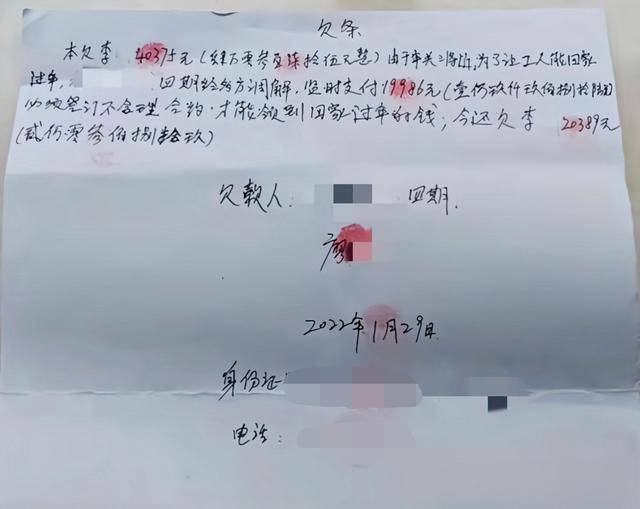 欠条
本欠李 40375元(肆万零叁百柒拾伍元整)由于年关将近,为了让工人能回家
过年, 四期经多方调解,临时支付19986元(壹仟玖佰捌拾陆)
必须签订不合理合约.才能领到回家过年的钱;今还欠李 20389元
(贰仟零叁佰捌拾玖)
欠款人: 四期.
廖
2022年1月29日
身份证:
电话: